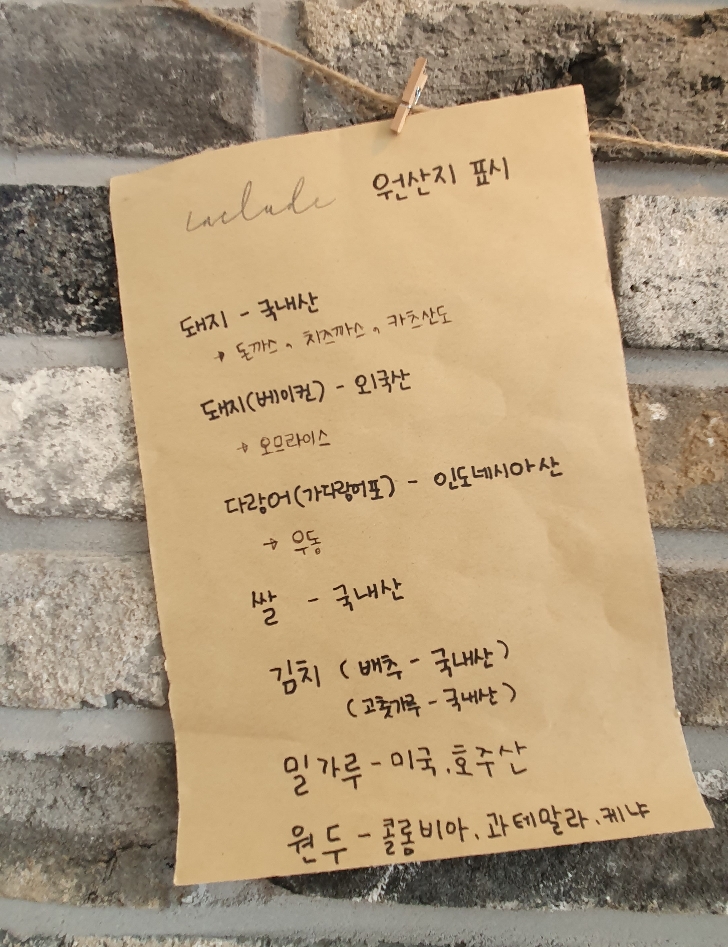 include 원산지 표시
돼지 - 국내산
→ 돈까스, 치즈까스, 카츠산도
돼지(베이컨) - 외국산
→ 오므라이스
다랑어(가다랑어포) - 인도네시아산
→ 우동
쌀 - 국내산
김치 (배추 - 국내산)
(고춧가루 - 국내산)
밀가루 - 미국, 호주산
원두 - 콜롬비아, 과테말라, 케냐